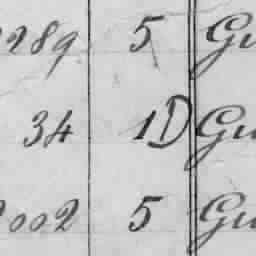 289 5 Gu
34 1D Gu
002 5 Gu